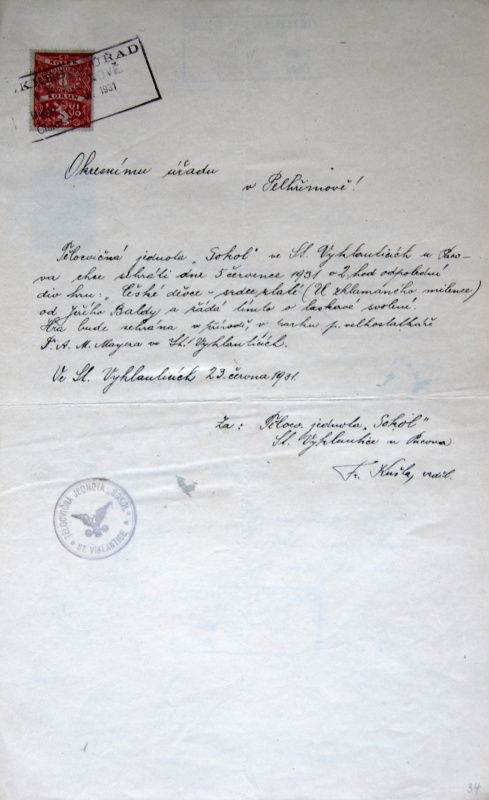 OKRESNÍ ÚŘAD
1931
Okresnímu úřadu
v Pelhřimově!
Tělocvičná jednota „Sokol" ve St. Vyklanticích u Paco-
va chce sehráti dne 5 července 1931 o 2 hod odpolední
div. hru: „České děvče - srdce zlaté (U zklamaného milence)
od Jiřího Baldy a žádá tímto o laskavé svolení.
Hra bude sehrána v přírodě, v parku p. velkostatkáře
F. A. M. Mayra ve St. Vyklanticích.
Ve St. Vyklanticích 23. června 1931.
Za: Tělocv. jednota „Sokol"
St. Vyklantice u Pacova
Fr. vzděl.
TĚLOCVIČNÁ JEDNOTA „SOKOL"
ST. VYKLANTICE
34